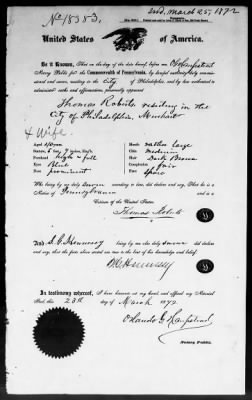 No 18383.
March 25, 1872
United States of America.
Be it Known, That on the day of the date hereof before me,
Notary Public for the Commonwealth of Pennsylvania, by lawful authority commissioned
and sworn, residing in the City of Philadelphia, and by law authorized
to administer oaths and affirmations, personally appeared
Thomas Roberts residing in the
City of Philadelphia, Merchant
& Wife
Stature, 5 feet 7 inches, Eng.
Forehead high & full
Eyes Blue
Nose prominent
Mouth Rather large
Chin medium
Hair Dark Brown
Complexion fair
Face Spare
Who being by me duly Sworn according to law, did declare and say, That he is a
Native of Pennsylvania and a
Citizen of the United States.
Thomas Roberts
And, S. C. Hennessy being by me also duly sworn did declare
and say, that the facts above stated are true to the best of his knowledge and belief.
In testimony whereof, I have hereunto set my hand and affixed my Notarial
Seal, this 23th day of March 1872.
Notary Public.